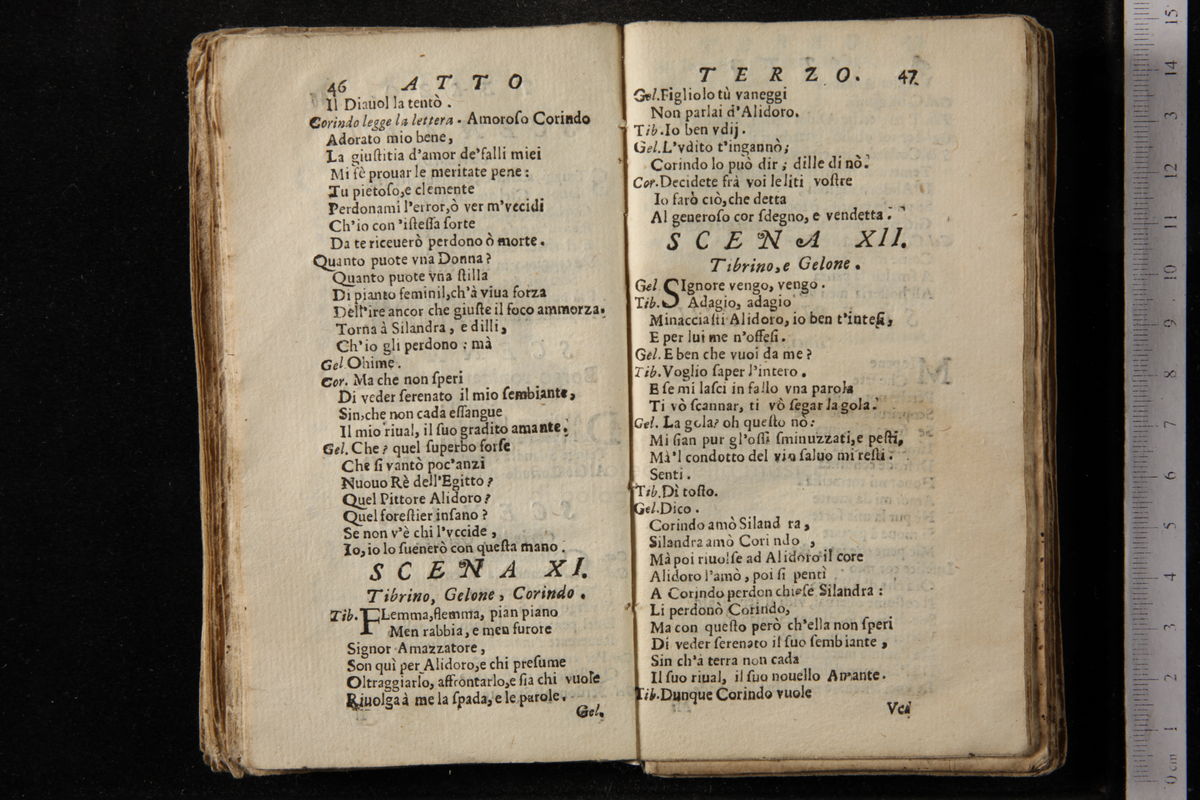 46 ATTO
Il Diauol la tentò .
Corindo legge la lettera . Amoroſo Corindo
Adorato mio bene,
La giuſtitia d'amor de'falli miei
Mi fè prouar le meritate pene :
Tu pietoſo,e clemente
Perdonami l'error,ò ver m'vccidi
Ch'io con 'iſteſſa ſorte
Da te riceuerò perdono ò morte .
Quanto puote vna Donna ?
Quanto puote vna ſtilla
Di pianto feminil,ch'à viua forza
Dell'ire ancor che giuſte il foco ammorza.
Torna à Silandra , e dilli,
Ch'io gli perdono ; mà
Gel Ohime .
Cor. Ma che non ſperi
Di veder ſerenato il mio ſembiante,
Sin,che non cada eſſangue
Il mio riual, il ſuo gradito amante.
Gel. Che ? quel ſuperbo forſe
Che ſi vantò poc'anzi
Nuouo Rè dell'Egitto ?
Quel Pittore Alidoro ?
Quel foreſtier inſano ?
Se non v'è chi l'vccide ,
Io,io lo ſuenerò con queſta mano .
SCENA XI.
Tibrino, Gelone, Corindo .
Tib. FLemma,flemma, pian piano
Men rabbia, e men furore
Signor Amazzatore ,
Son quì per Alidoro,e chi preſume
Oltraggiarlo, affrontarlo,e ſia chi vuole
Riuolga à me la ſpada, e le parole .
Gel.
TERZO. 47
Gel.Figliolo tù vaneggi
Non parlai d'Alidoro.
Tib.Io ben vdij .
Gel.L'vdito t'ingannò;
Corindo lo può dir ; dille di nò.
Cor.Decidete frà voi le liti voſtre
Io farò ciò,che detta
Al generoſo cor ſdegno, e vendetta .
SCENA XII.
Tibrino,e Gelone .
Gel SIgnore vengo, vengo .
Tib. Adagio, adagio
Minacciaſti Alidoro, io ben t'inteſi,
E per lui me n'offeſi .
Gel. E ben che vuoi da me ?
Tib.Voglio ſaper l'intero .
E ſe mi laſci in fallo vna parola
Ti vò ſcannar, ti vò ſegar la gola.
Gel. La gola? oh queſto nò:
Mi ſian pur gl'oſſi ſminuzzati,e peſti,
Mà'l condotto del vin ſaluo mi reſti .
Senti .
Tib.Dì toſto.
Gel.Dico .
Corindo amò Siland ra,
Silandra amò Cori ndo ,
Mà poi riuolſe ad Alidoro il core
Alidoro l'amò , poi ſi pentì
A Corindo perdon chieſe Silandra :
Li perdonò Corindo,
Ma con queſto però ch'ella non ſperi
Di veder ſerenato il ſuo ſembiante ,
Sin ch'à terra non cada
Il ſuo riual, il ſuo nouello Amante.
Tib.Dunque Corindo vuole
Vcci
15
14
13
12
11
10
9
8
7
6
5
4
3
2
1
0 cm